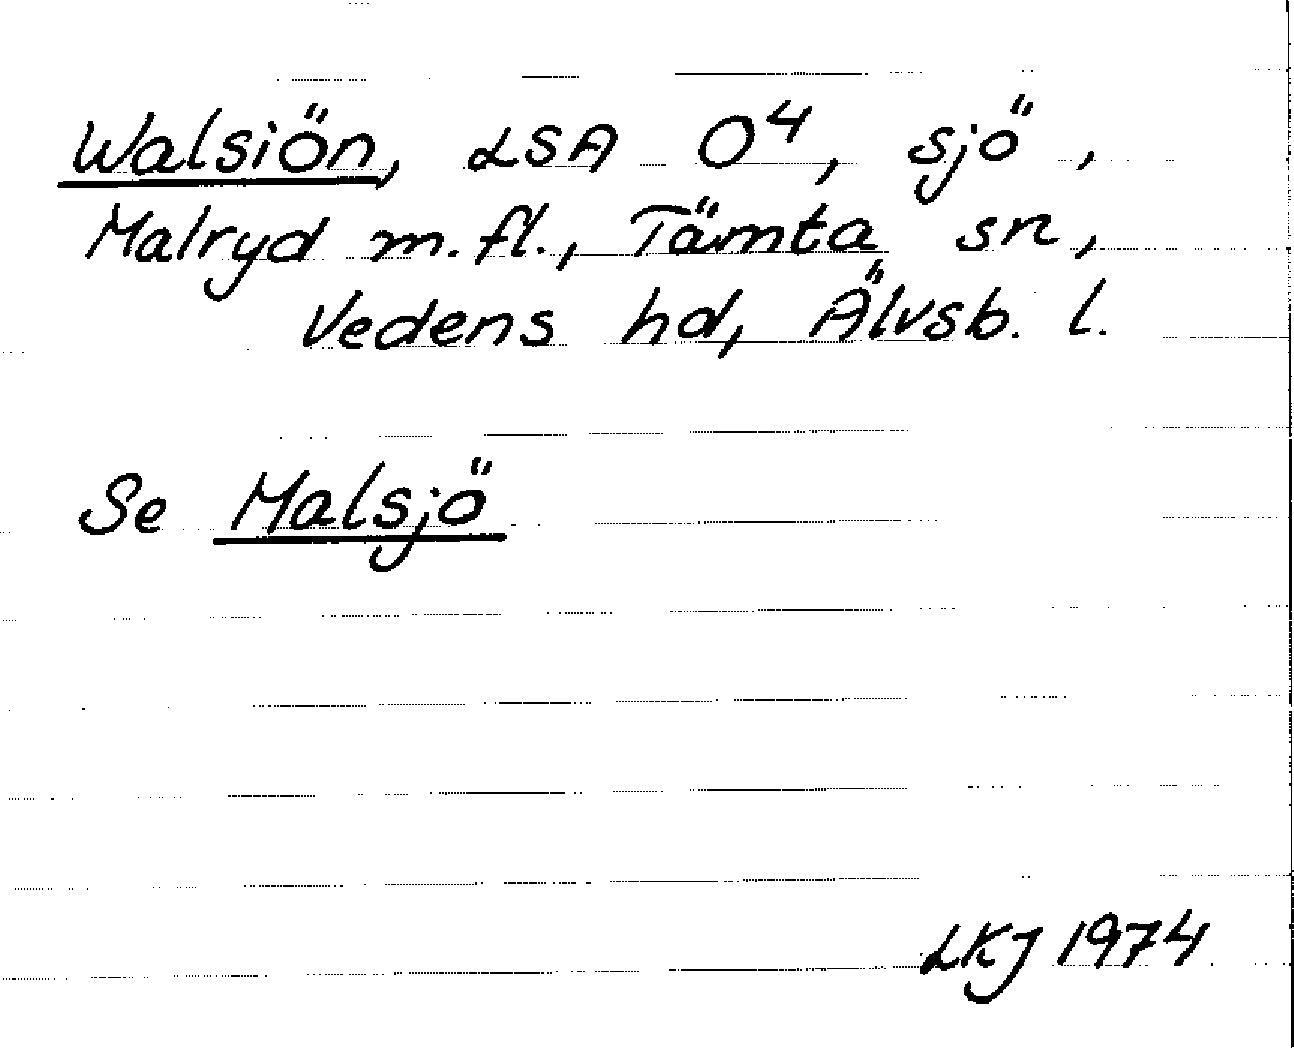 Walsiön, LSA O4, sjö,
Malryd m.fl., Tämta sn,
Vedens hd, Älvsb. l.
Se Malsjö
LKJ 1974